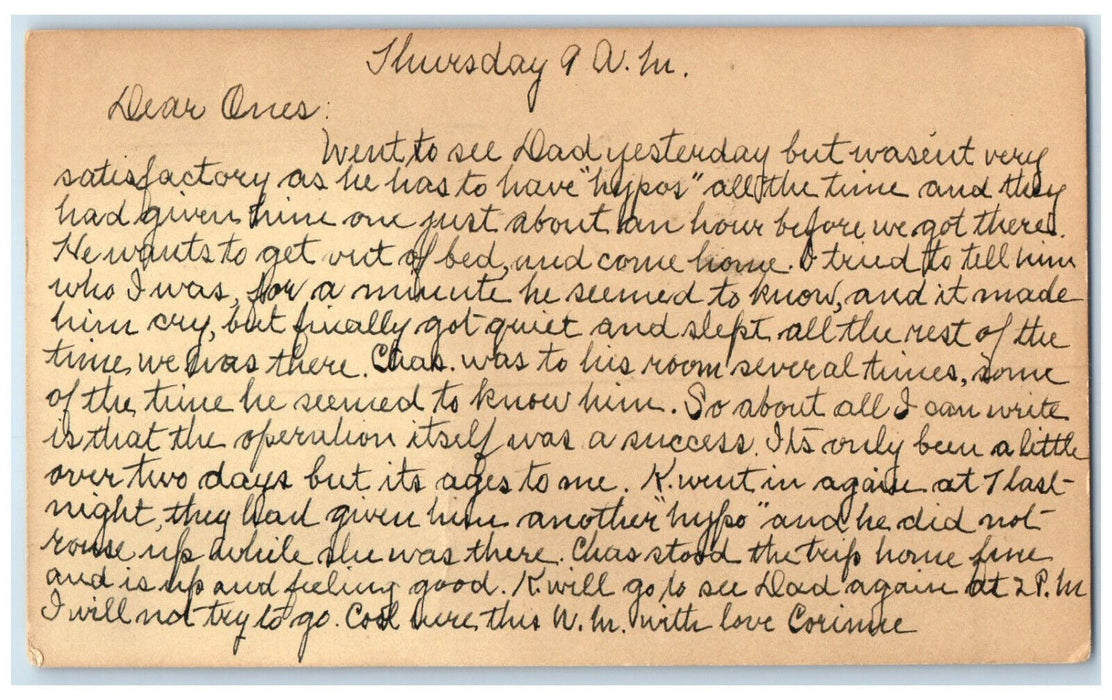 Thursday 9 A.M.
Dear Ones:
Went to see Dad yesterday but wasent very
satisfactory as he has to have "hypos" all the time and they
had given him one just about an hour before we got there.
He wants to get out of bed, and come home. I tried to tell him
who I was, for a minute he seemed to know, and it made
him cry, but finally got quiet and slept all the rest of the
time we was there. Chas. was to his room several times, some
of the time he seemed to know him. So about all I can write
is that the operation itself was a success. Its only been a little
over two days but its ages to me. K. went in again at 7 last
night, they had given him another "hypo" and he did not
rouse up while she was there. Chas stood the trip home fine
and is up and feeling good. K. will go to see Dad again at 2 P.M
I will not try to go. Cool here this A.M. with love Corinne